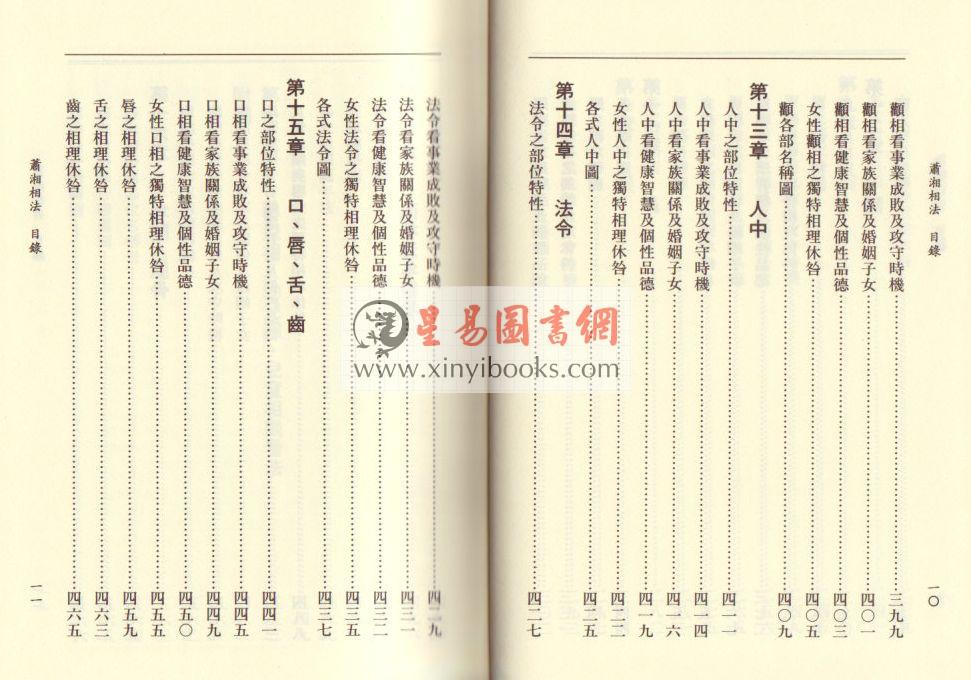 蕭湘相法　目錄
一〇
顴相看事業成敗及攻守時機……三九九
顴相看家族關係及婚姻子女……四〇一
顴相看健康智慧及個性品德……四〇三
女性顴相之獨特相理休咎……四〇五
顴各部名稱圖……四〇九
第十三章　人中
人中之部位特性……四一一
人中看事業成敗及攻守時機……四一四
人中看家族關係及婚姻子女……四一六
人中看健康智慧及個性品德……四一九
女性人中之獨特相理休咎……四二三
各式人中圖……四二五
第十四章　法令
法令之部位特性……四二七
法令看事業成敗及攻守時機……四二九
法令看家族關係及婚姻子女……四三一
法令看健康智慧及個性品德……四三二
女性法令之獨特相理休咎……四三五
各式法令圖……四三七
第十五章　口、唇、舌、齒
口之部位特性……四四一
口相看事業成敗及攻守時機……四四五
口相看家族關係及婚姻子女……四四九
口相看健康智慧及個性品德……四五〇
女性口相之獨特相理休咎……四五五
唇之相理休咎……四五九
舌之相理休咎……四六三
齒之相理休咎……四六五
蕭湘相法　目錄
一一
星易圖書網
www.xinyibooks.com